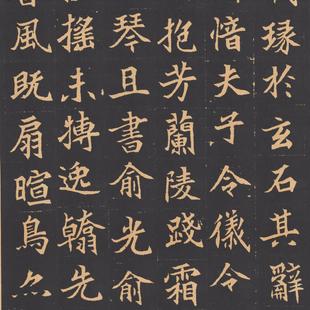 瑑於玄石其辭
愔夫子令儀令
抱芳蘭陵踐霜
琴且書俞光俞
搖未搏逸翰先
風既扇暄鳥